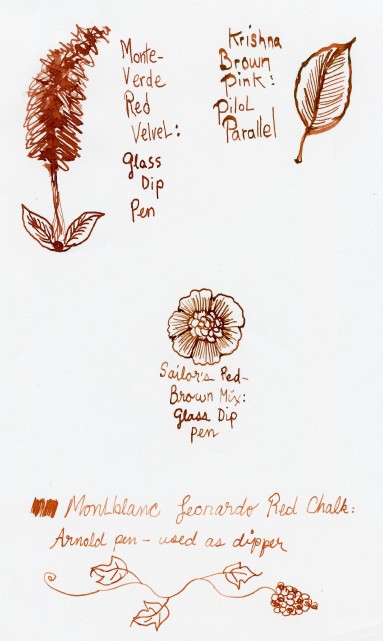 Monte-
Verde
Red
Velvet:
Glass
Dip
Pen
Krishna
Brown
Pink:
Pilot
Parallel
Sailor's Red-
Brown Mix:
Glass Dip
Pen
Montblanc Leonardo Red Chalk:
Arnold pen - used as dipper